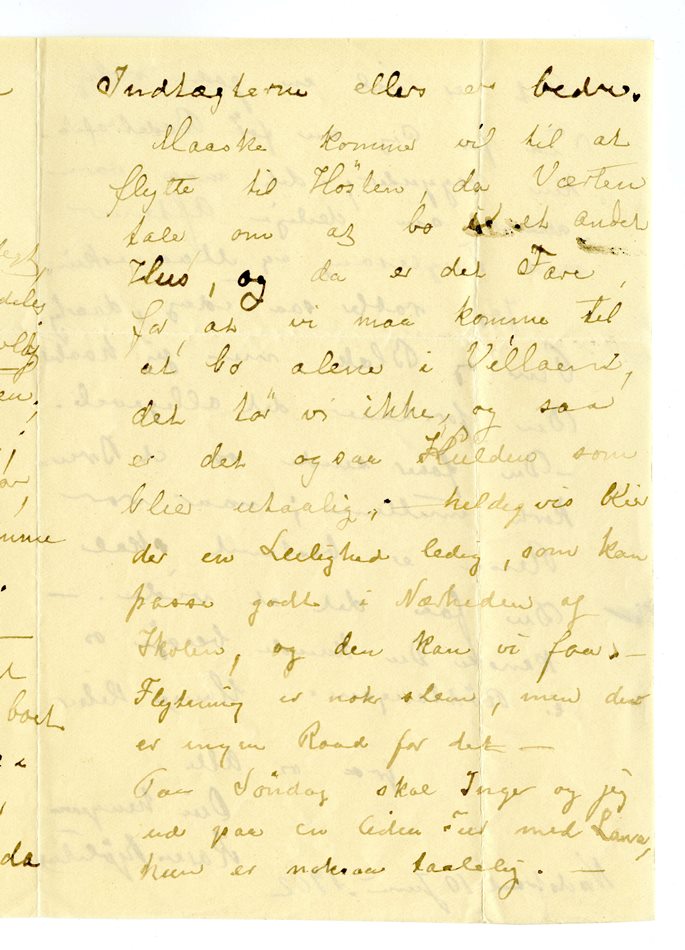 Indtægterne ellers er bedre.
Maaske komme vil til at
flytte til Hösten, da Værten
tale om at bo i et andet
Hus, og da er det Fare,
for, at vi maa komme til
at bo alene i Villaen,
det tör vi ikke, og saa
er det ogsaa Hulden som
blir utaalig, - heldigvis blir
der en Leilighed ledig, som kan
passe godt i Nærheden af
Skolen, og den kan vi faa. -
Flytning er nok slem, men der
er ingen Raad for det -
Paa Söndag skal Inger og jeg
ud paa en liden Tur med Lara,
hun er noksaa taalelig. -
boet
da